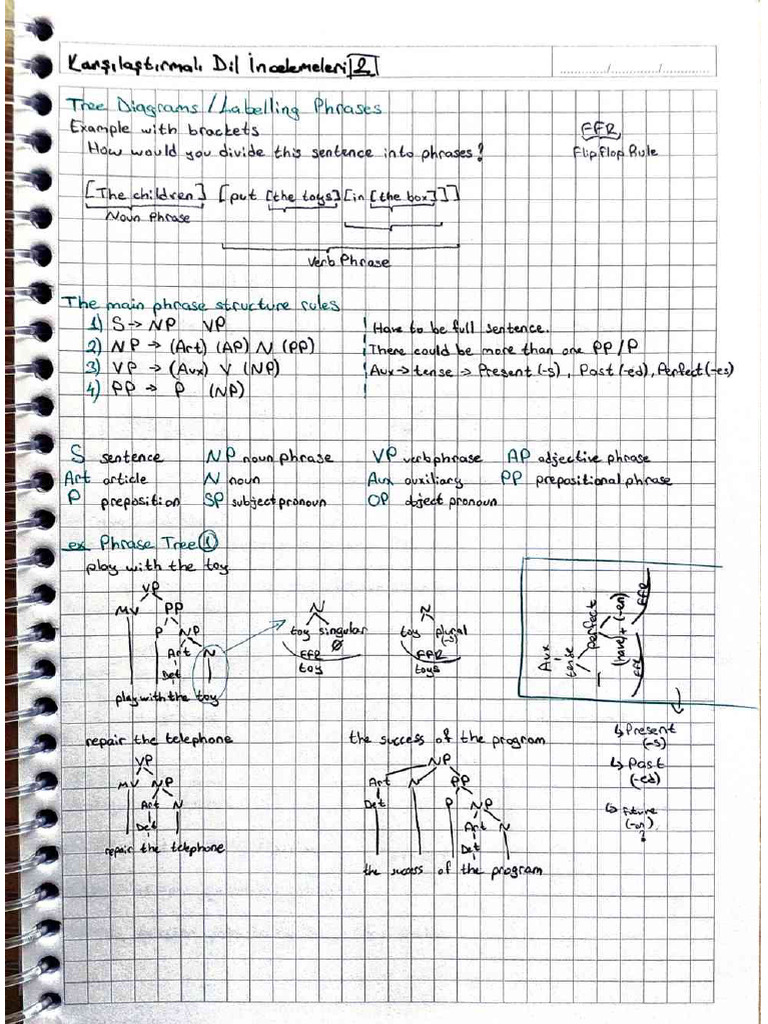 Karşılaştırmalı Dil İncelemeleri 2
Tree Diagrams / Labelling Phrases
Example with brackets
EFR
How would you divide this sentence into phrases?
Flip Flop Rule
[The children] [put [the toys] [in [the box]]]
Noun Phrase
Verb Phrase
The main phrase structure rules
1) S → NP VP
Have to be full sentence.
2) NP → (Art) (AP) N (PP)
There could be more than one PP / P
3) VP → (Aux) V (NP)
Aux → tense → Present (-s), Past (-ed), Perfect (-es)
4) PP → P (NP)
S sentence NP noun phrase VP verb phrase AP adjective phrase
Art article N noun Aux auxiliary PP prepositional phrase
P preposition SP subject pronoun OP object pronoun
ex Phrase Tree 1
play with the toy
VP
MV PP
P NP
Art N
Det
play with the toy
N
toy singular
Ø
FFR
toy
N
toy plural
(-s)
FFR
toys
Aux
tense Perfect
(have) + (-en)
FFR FFR
↳ Present
(-s)
↳ Past
(-ed)
↳ future
?
repair the telephone
VP
MV NP
Art N
Det
repair the telephone
the success of the program
NP
Art N PP
Det P NP
Art N
Det
the success of the program